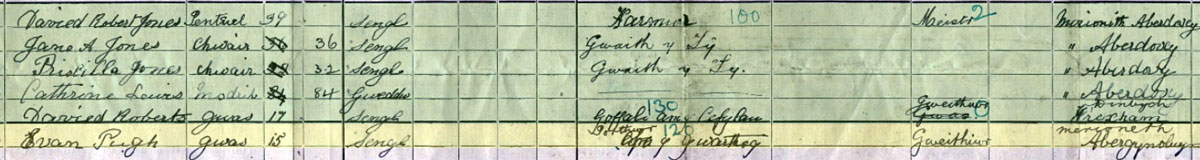 Davied Robert Jones Penteul 39 Sengl Farmer 100 Meistr 2 Merionith Aberdovey
Jane A Jones Chwair 36 36 Sengl Gwaith y Ty " Aberdovy
Priscilla Jones Chwair 32 32 Sengl Gwaith y Ty. " Aberdovy
Cathrine Lewis Modrib 84 84 Gweddw " Aberdovy
Davied Roberts gwas 17 Sengl 130 Goffali am Cefylau Gweithiwr Gwas Dinbych Wrexham
Evan Pugh gwas 15 Sengl 120 y Gwartheg Gweithiwr Abergynolwyn